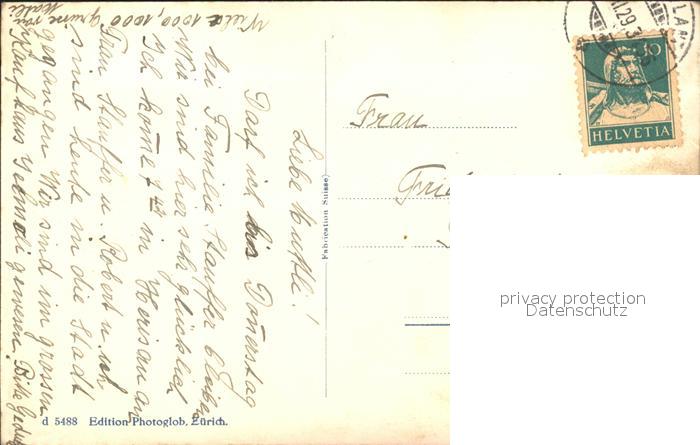 Liebe Mutti!
Darf ich bis Donnerstag
bei Familie Stauffer bleiben
Wir sind hier sehr glücklich
Ich kome 7 in Herisau an
Frau Stauffer u. Robert u. ich
sind heute in die Stadt
gegangen Wir sind im grossen
Kaufhaus Jelmoli gewesen. Bitte
Viele 1000, 1000 Grüsse von
Frau
HELVETIA
10
29.3
(Fabrication Suisse)
d 5488 Edition Photoglob, Zürich.
privacy protection
Datenschutz